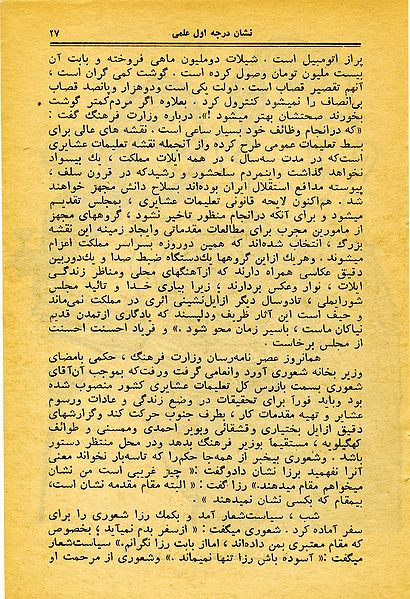 نشان درجه اول علمی ۲۷
پراز اتومبیل است . شیلات دومليون ماهی فروخته و بابت آن
بیست ملیون تومان وصول کرده است . گوشت کمی گران است ،
آنهم تقصیر قصاب است . دولت یکی است ودوهزار وپانصد قصاب
بی‌انصاف را نمیشود کنترول کرد . بعلاوه اگر مردم‌کمتر گوشت
بخورند صحتشان بهتر میشود !». درباره وزارت فرهنگ گفت :
«که درانجام وظائف خود بسیار ساعی است . نقشه های عالی برای
بسط تعلیمات عمومی طرح کرده واز آنجمله نقشه تعلیمات عشایری
است‌که در مدت سه‌سال ، در همه ایلات مملکت ، یك بیسواد
نخواهد گذاشت واینمردم سلحشور و رشیدکه در قرون سلف ،
پیوسته مدافع استقلال ایران بوده‌اند بسلاح دانش مجهز خواهند
شد . هم‌اکنون لایحه قانونی تعلیمات عشایری ، بمجلس تقدیم
میشود و برای آنکه درانجام منظور تاخیر نشود ، گروههای مجهز
از مامورین مجرب برای مطالعات مقدماتی وایجاد زمینه این نقشه
بزرگ ، انتخاب شده‌اند که همین دوروزه بسراسر مملکت اعزام
میشوند . وهریك ازاین گروهها یك‌دستگاه ضبط صدا و یك‌دوربین
دقیق عکاسی همراه دارند که ازآهنگهای محلی ومناظر زندگی
ایلات ، نوار وعکس بردارند ؛ زیرا بیاری خدا و تائید مجلس
شورایملی ، تادوسال دیگر ازایل‌نشینی اثری در مملکت نمی‌ماند
و حیف است این آثار ظریف ودلپسند که یادگاری ازتمدن قدیم
نیاکان ماست ، باسیر زمان محو شود .» و فریاد احسنت احسنت
از مجلس برخاست .
همانروز عصر نامه‌رسان وزارت فرهنگ ، حکمی بامضای
وزیر بخانه شعوری آورد وانعامی گرفت ورفت‌که بموجب آن‌آقای
شعوری بسمت بازرس کل تعلیمات عشایری کشور منصوب شده
بود وباید فوراً برای تحقیقات در وضع زندگی و عادات ورسوم
عشایر و تهیه مقدمات کار ، بطرف جنوب حرکت کند وگزارشهای
دقیق ازایل بختیاری وقشقائی وبویر احمدی وممسنی و طوائف
کهگیلویه ، مستقیماً بوزیر فرهنگ بدهد ودر محل منتظر دستور
باشد . وشعوری بیخبر از همه‌جا حکم‌را که تاسه‌بار نخواند معنی
آنرا نفهمید برزا نشان دادوگفت: « چیز غریبی است من نشان
میخواهم مقام میدهند.» رزا گفت : « البته مقام مقدمه نشان است،
بیمقام که بکسی نشان نمیدهند » .
شب ، سیاست‌شعار آمد و بکمك رزا شعوری را برای
سفر آماده کرد . شعوری میگفت : « ازسفر بدم نمیآید ؛ بخصوص
که مقام معتبری بمن داده‌اند ، امااز بابت رزا نگرانم.» سیاست‌شعار
میگفت :« آسوده باش رزا تنها نمیماند .» وشعوری از مرحمت او